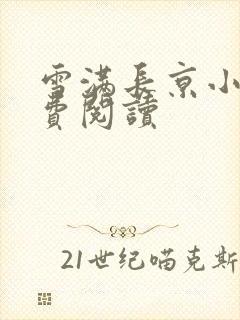 雪满长京小
费阅读
21世纪喵克斯